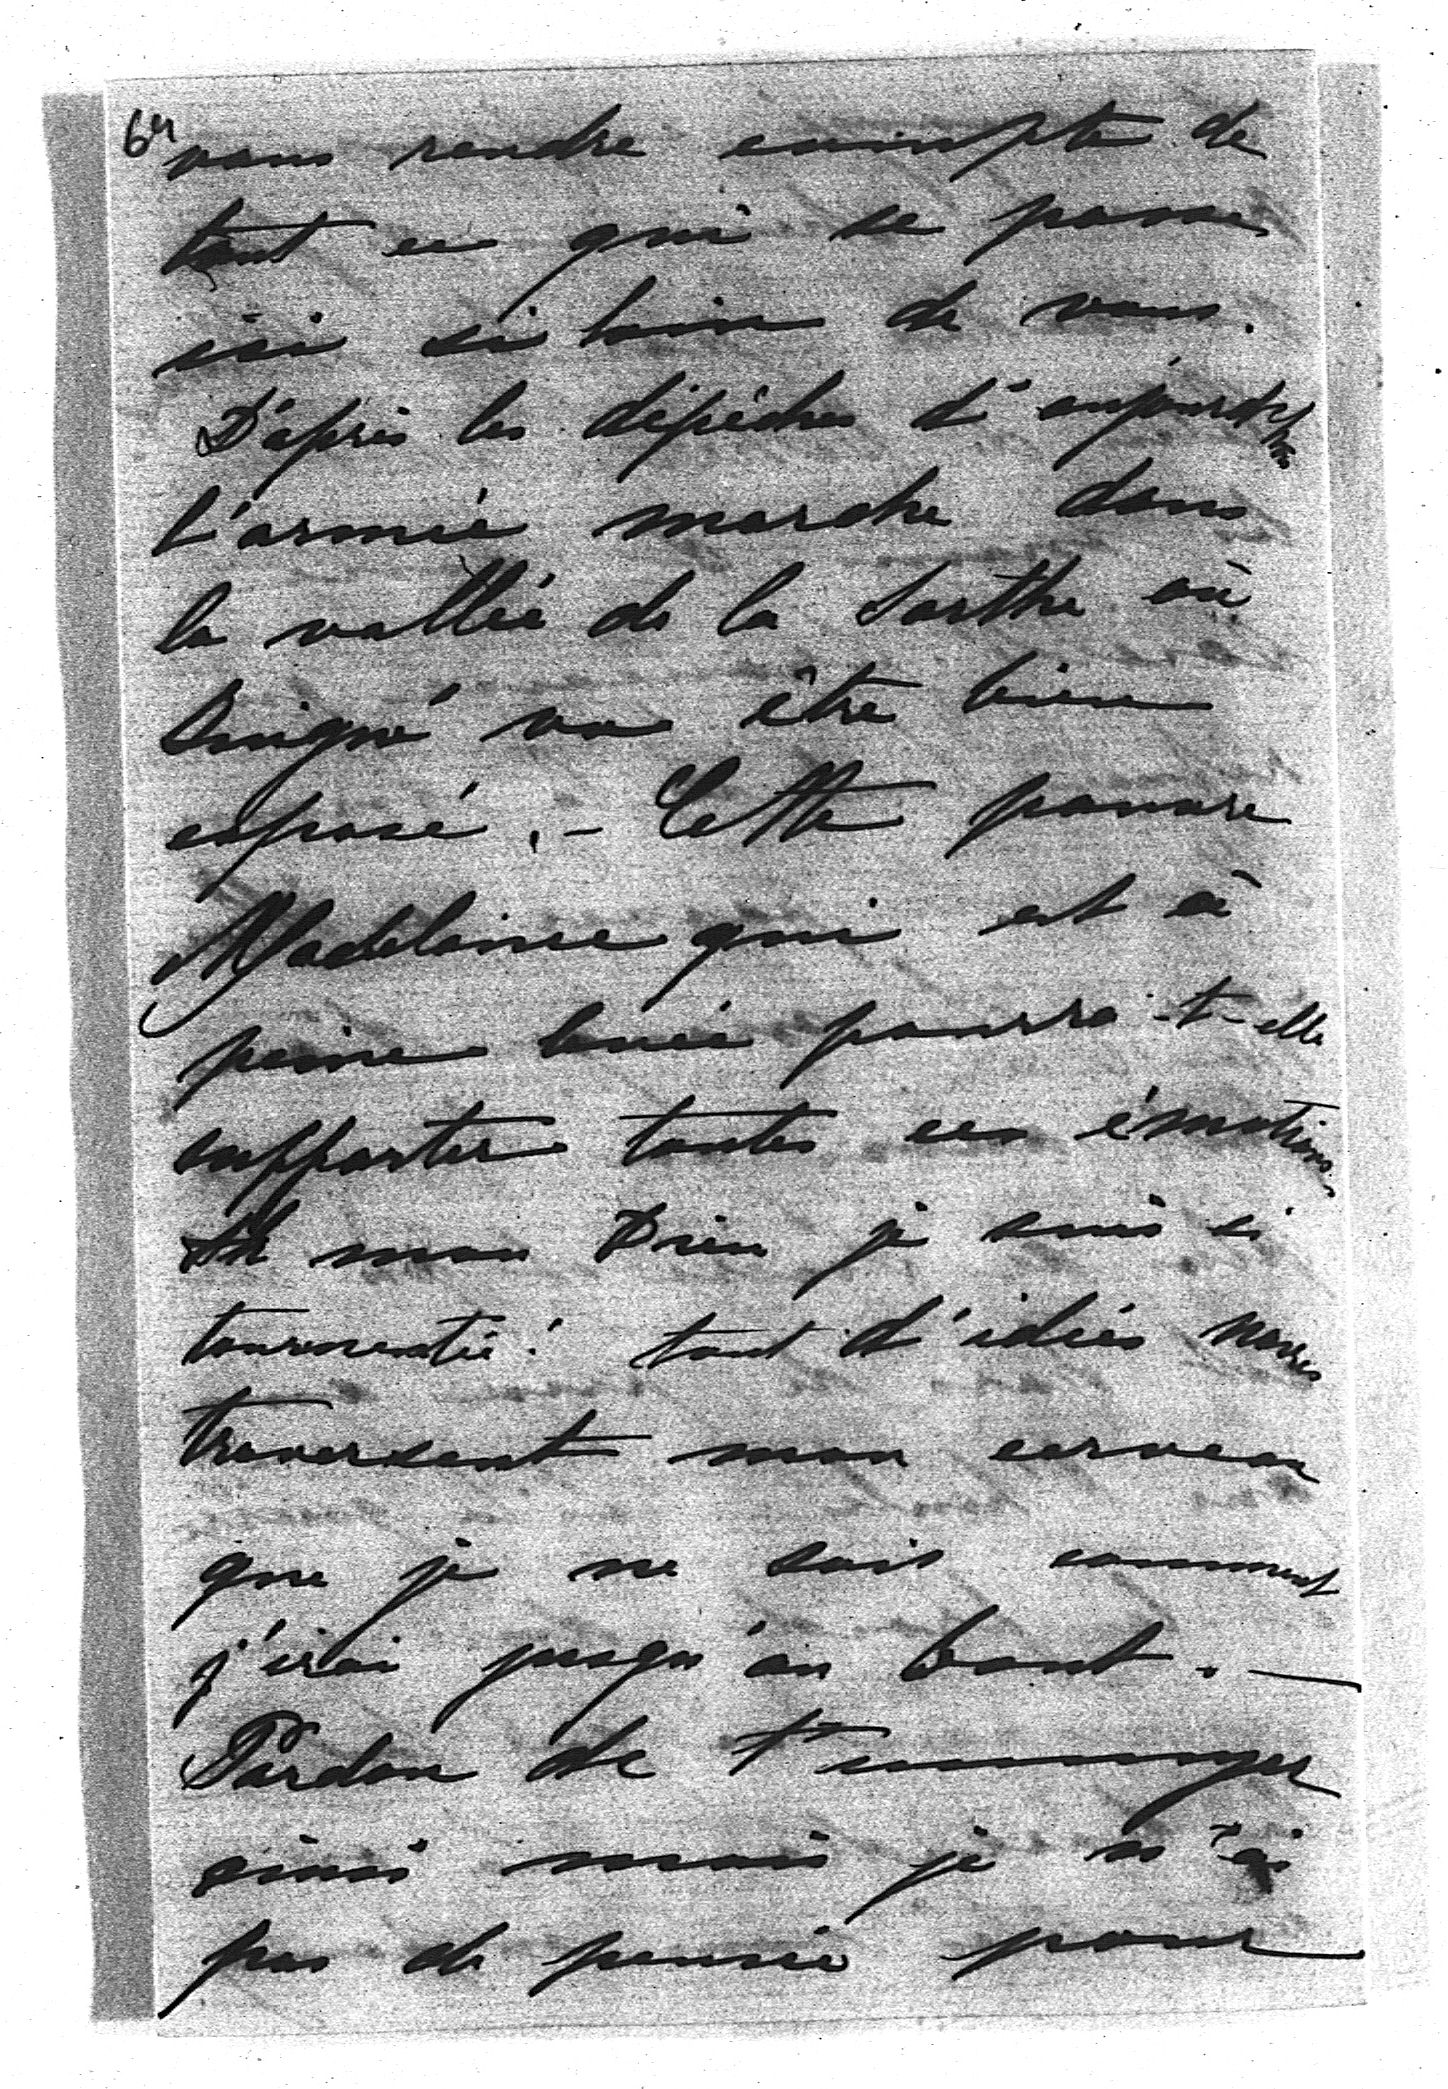 64
vous rendre compte de
tout ce qui se passe
ici si loin de vous.
D'après les dépêches d'aujourd'hui
l'armée marche dans
la vallée de la Sarthe où
Buigné va être bien
exposé. - Cette pauvre
Madeleine qui est à
peine levée pourra-t-elle
supporter toutes ces émotions.
Ah mon Dieu je suis si
tourmentée! tant d'idées noires
traversent mon cerveau
que je ne sais comment
j'irai jusqu'au bout. —
Pardon de t'ennuyer
ainsi mais je n'ai
pas de pensée pour